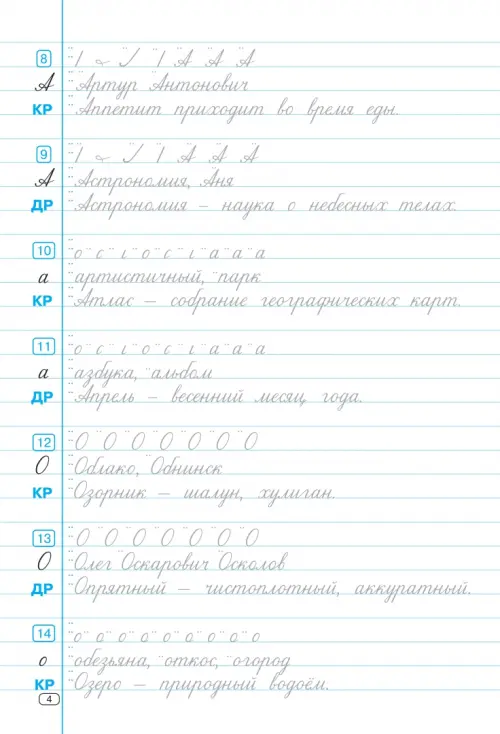 8 I ~ I I А А А
А Артур Антонович
КР Аппетит приходит во время еды.
9 I ~ I I А А А
А Астрономия, Аня
ДР Астрономия – наука о небесных телах.
10 о с ι о с ι а а а
а артистичный, парк
КР Атлас – собрание географических карт.
11 о с ι о с ι а а а
а азбука, альбом
ДР Апрель – весенний месяц года.
12 О О О О О О О
О Облако, Обнинск
КР Озорник – шалун, хулиган.
13 О О О О О О О
О Олег Оскарович Осколов
ДР Опрятный – чистоплотный, аккуратный.
14 о а о а о а о а о
о обезьяна, откос, огород
КР Озеро – природный водоём.
4